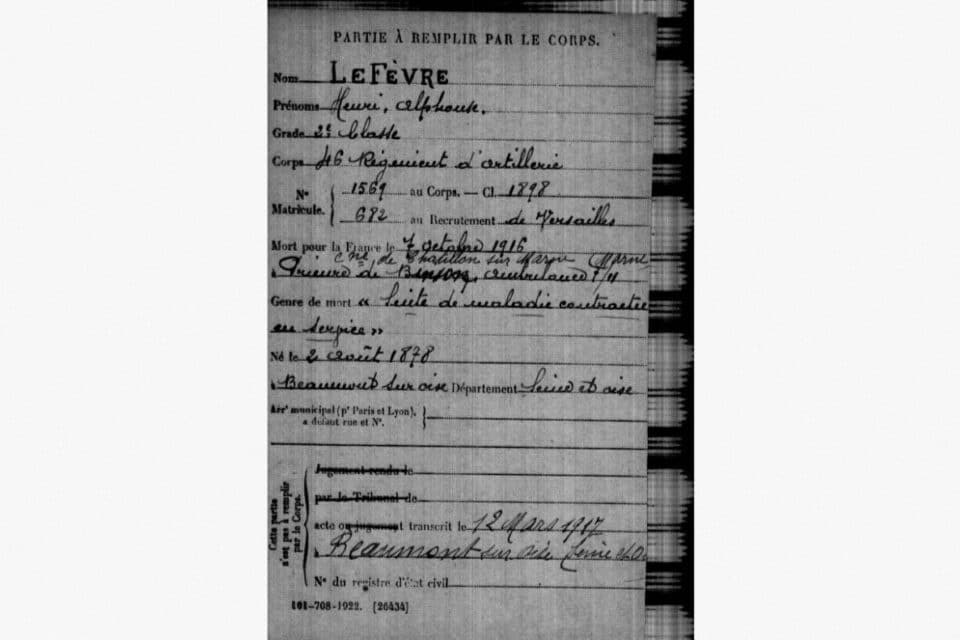 PARTIE À REMPLIR PAR LE CORPS.
Nom LEFÈVRE
Prénoms Henri, Alphonse.
Grade 2e Classe
Corps 46 Régiment d'artillerie
N° Matricule. { 1569 au Corps. — Cl. 1898
682 au Recrutement de Versailles
Mort pour la France le 7 octobre 1916
cne de Chatillon sur Marne Marne
à Prieuré de Binson, ambulance 1/11
Genre de mort « Suite de maladie contractée
en service »
Né le 2 Août 1878
à Beaumont sur oise Département Seine et oise
Arrt municipal (pr Paris et Lyon), }
à défaut rue et N°.
Cette partie n'est pas à remplir par le Corps.
Jugement rendu le
par le Tribunal de
acte ou jugement transcrit le 12 Mars 1917
à Beaumont sur oise Seine et O
N° du registre d'état civil
101-708-1922. [26434]